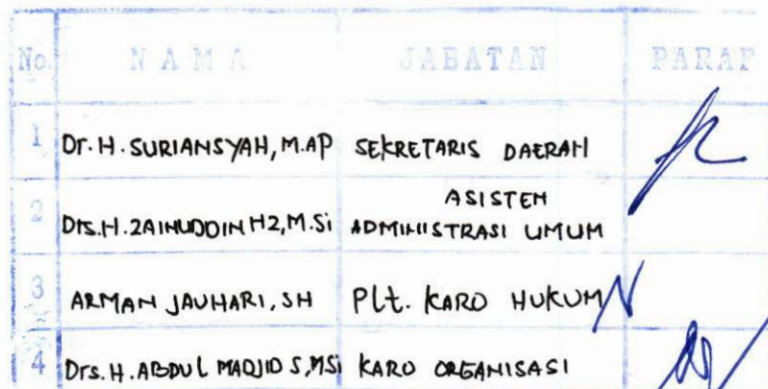 No. NAMA JABATAN PARAF
1 Dr. H. SURIANSYAH, M.AP SEKRETARIS DAERAH
ASISTEN
2 Drs. H. ZAINUDDIN HZ, M.Si ADMINISTRASI UMUM
3 ARMAN JAUHARI, SH Plt. KARO HUKUM
4 Drs. H. ABDUL MADJID S, MSi KARO ORGANISASI